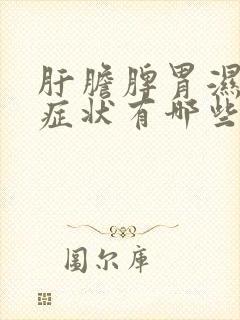 肝膽脾胃濕
症狀有哪些
圖尔庫